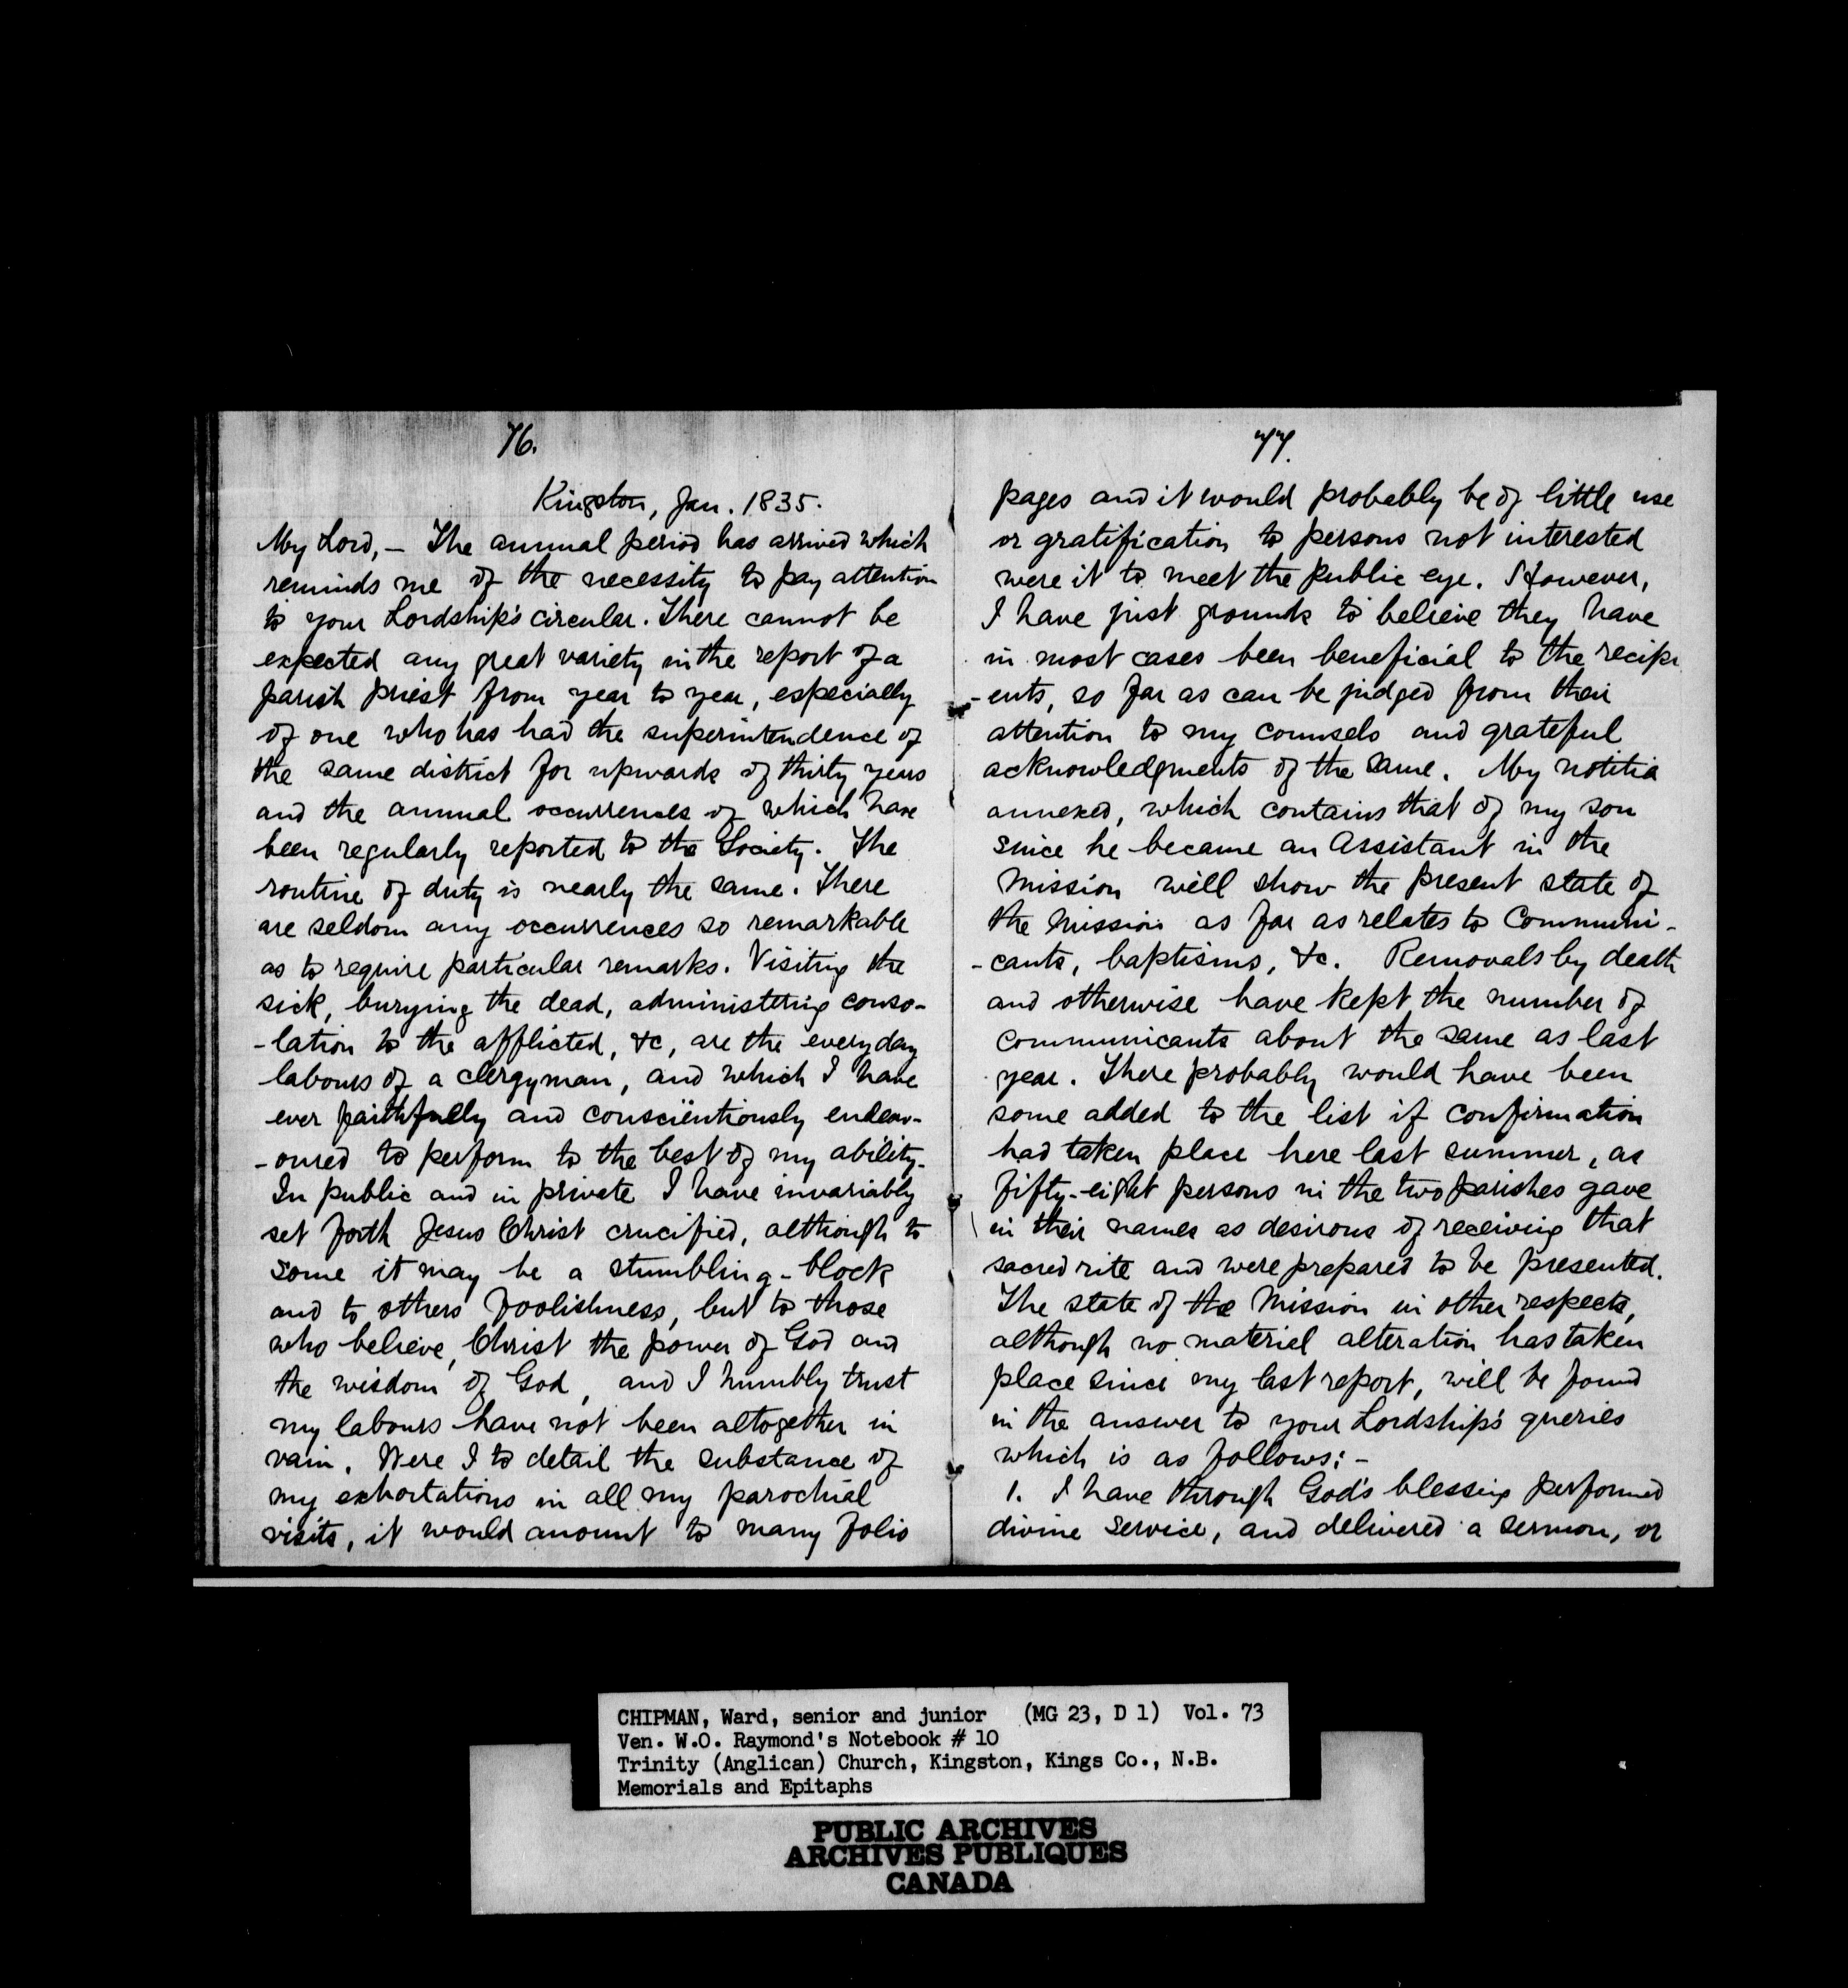 76.
Kingston, Jan. 1835.
My Lord, — The annual period has arrived which
reminds me of the necessity to pay attention
to your Lordship's circular. There cannot be
expected any great variety in the report of a
parish priest from year to year, especially
of one who has had the superintendence of
the same district for upwards of thirty years
and the annual occurrences of which have
been regularly reported to the Society. The
routine of duty is nearly the same. There
are seldom any occurrences so remarkable
as to require particular remarks. Visiting the
sick, burying the dead, administering conso-
-lation to the afflicted, &c, are the every day
labours of a clergyman, and which I have
ever faithfully and consciëntiously endeav-
-oured to perform to the best of my ability.
In public and in private I have invariably
set forth Jesus Christ crucified, although to
some it may be a stumbling-block
and to others foolishness, but to those
who believe, Christ the power of God and
the wisdom of God, and I humbly trust
my labours have not been altogether in
vain. Were I to detail the substance of
my exhortations in all my parochial
visits, it would amount to many folio
77.
pages and it would probably be of little use
or gratification to persons not interested
were it to meet the public eye. However,
I have just grounds to believe they have
in most cases been beneficial to the recipi
-ents, so far as can be judged from their
attention to my counsels and grateful
acknowledgments of the same. My notitia
annexed, which contains that of my son
since he became an Assistant in the
Mission will show the present state of
the Mission as far as relates to Communi-
-cants, baptisms, &c. Removals by death
and otherwise have kept the number of
communicants about the same as last
year. There probably would have been
some added to the list if confirmation
had taken place here last summer, as
fifty-eight persons in the two parishes gave
in their names as desirous of receiving that
sacred rite and were prepared to be presented.
The state of the Mission in other respects,
although no material alteration has taken
place since my last report, will be found
in the answer to your Lordship's queries
which is as follows:-
1. I have through God's blessing performed
divine service, and delivered a sermon, or
CHIPMAN, Ward, senior and junior (MG 23, D 1) Vol. 73
Ven. W.O. Raymond's Notebook # 10
Trinity (Anglican) Church, Kingston, Kings Co., N.B.
Memorials and Epitaphs
PUBLIC ARCHIVES
ARCHIVES PUBLIQUES
CANADA